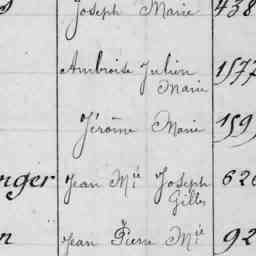 Joseph Marie 438
Ambroise Julien 1577
Marie
Jérôme Marie 159
nger Jean Mie Joseph 620
Gilles
n Jean Pierre Mie 92